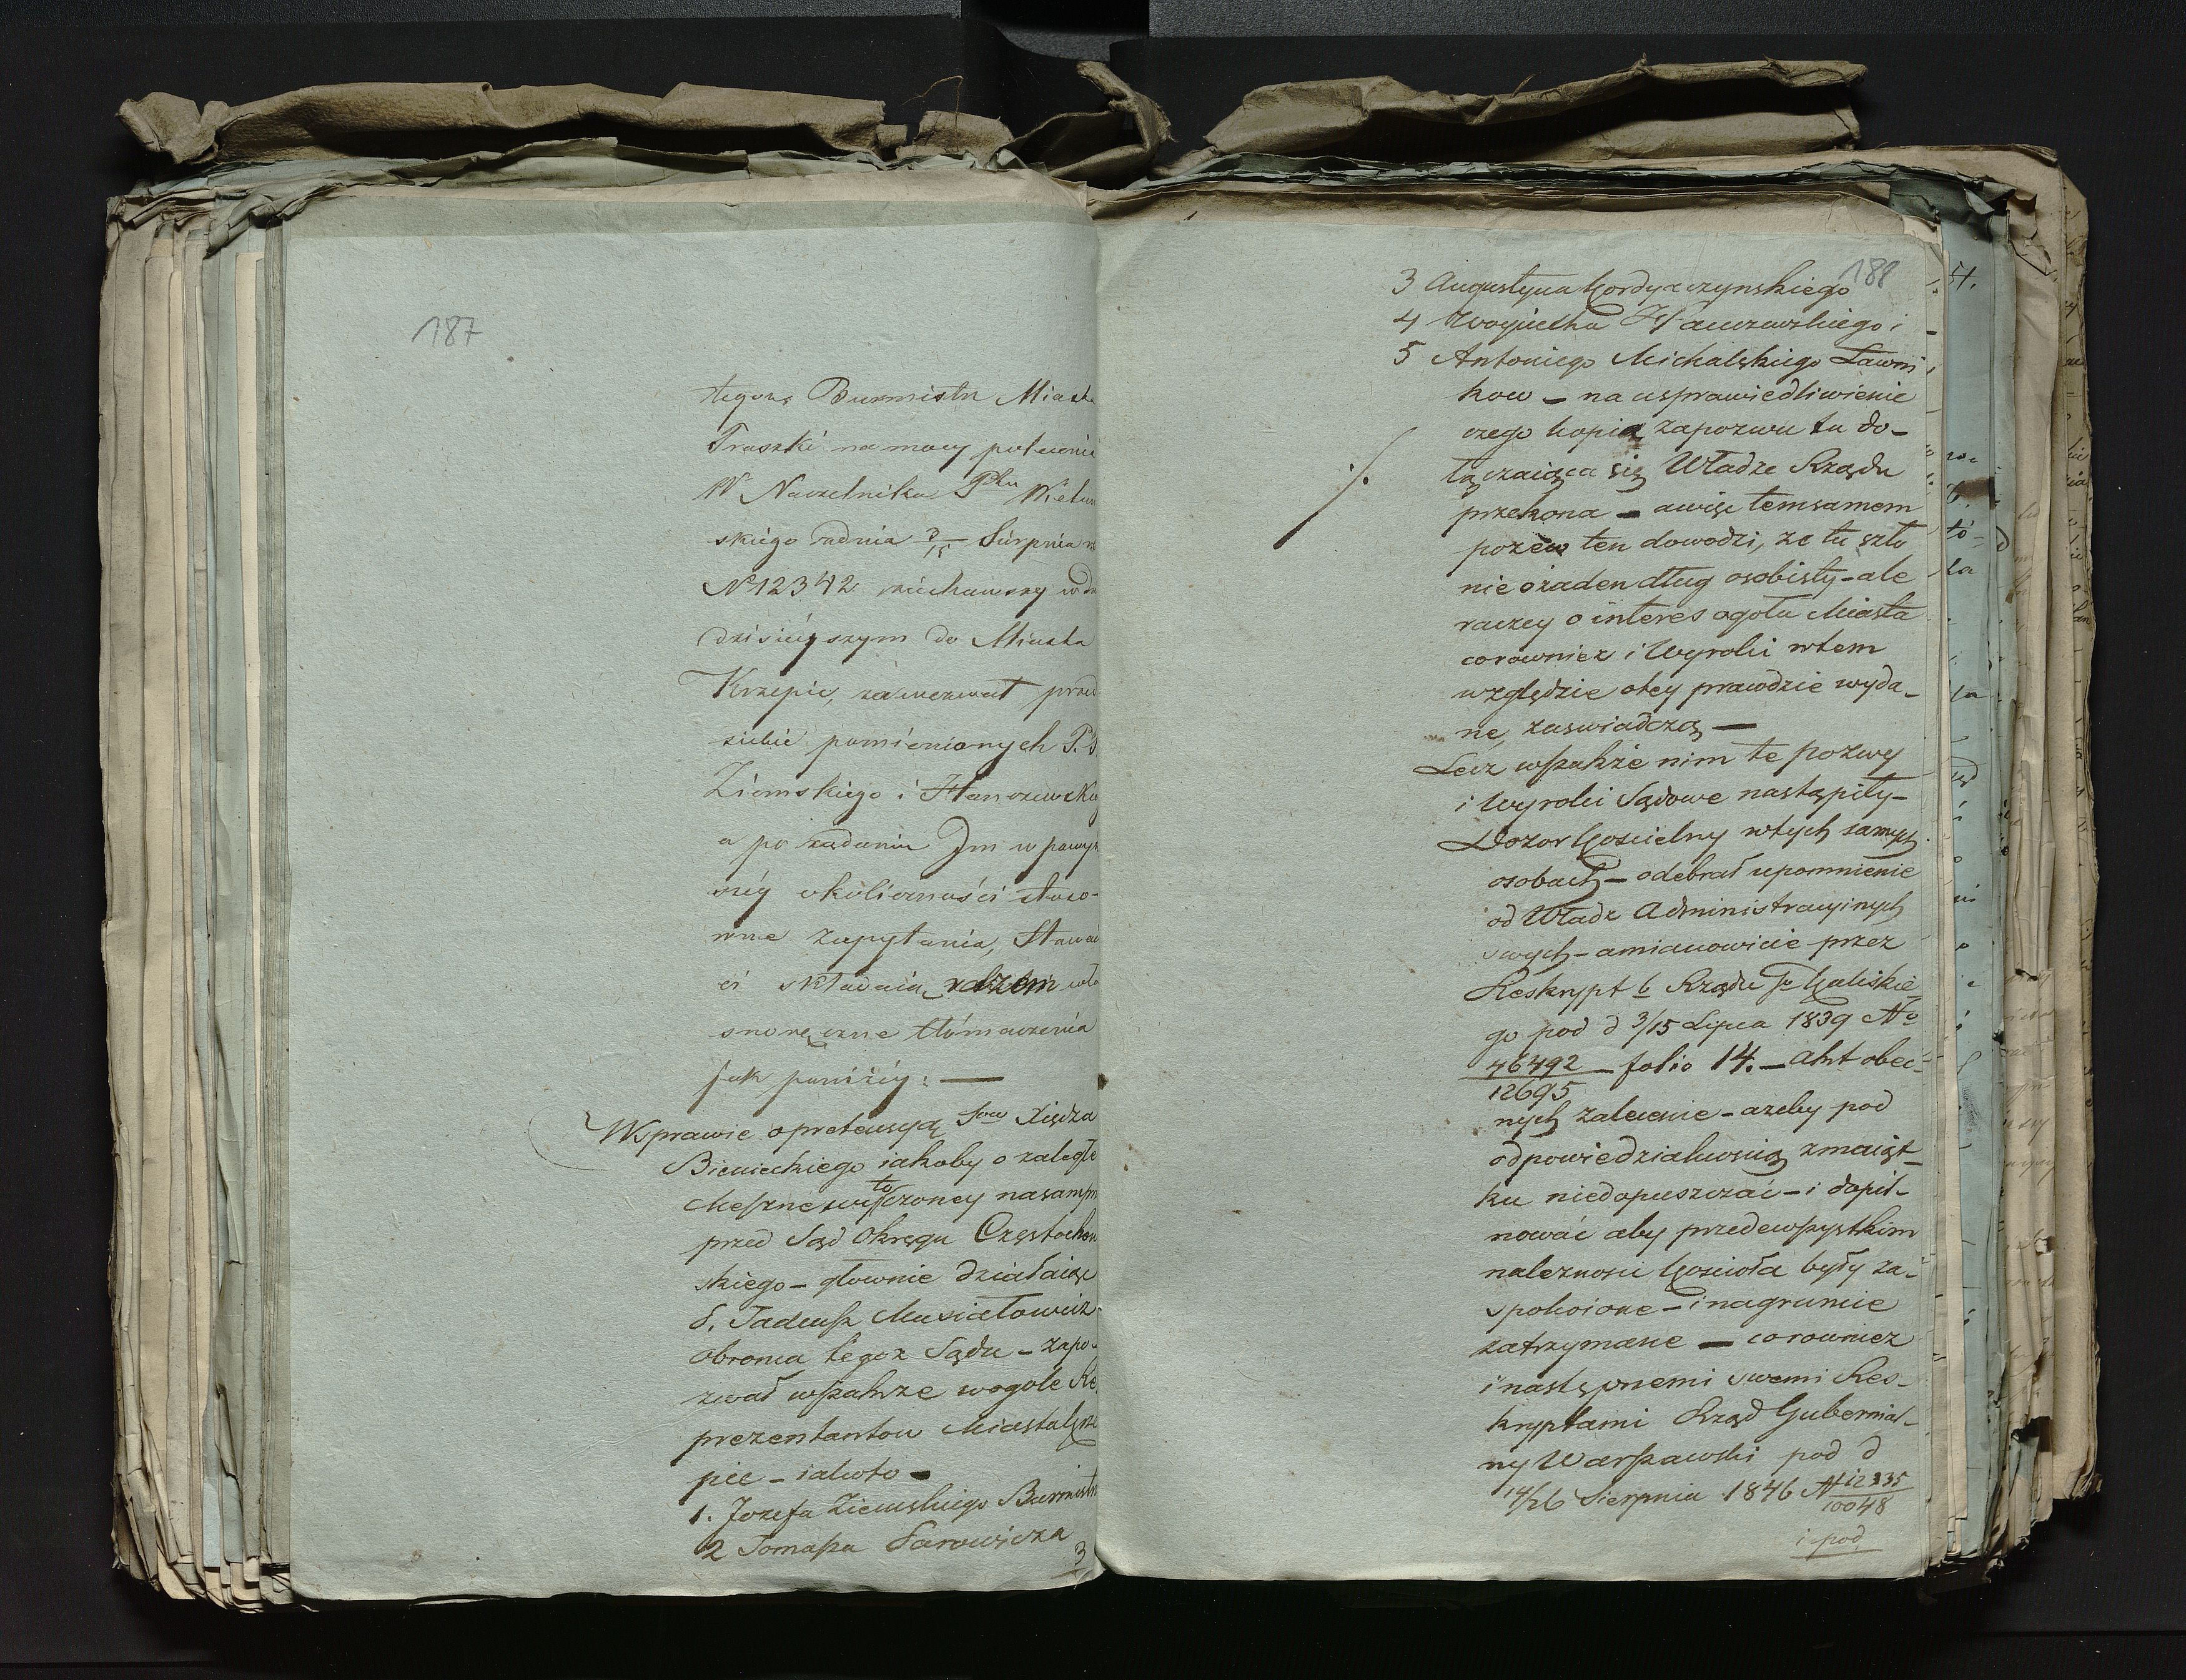 187
tegoż Burmistr Miasta
Praszki na mocy polecenia
W Naczelnika Ptu Wielun
skiego z dnia 3/15 Sierpnia
No 12342 ziechawszy w dn
dzisieyszym do Miasta
Krzepic, zawezwał przed
siebie pomienionych P.P
Ziemskiego i Hanczewskieg
a po zadaniu Im w powyż
széy okoliczności stoso-
wne zapytania, Stawai
ci składaią razem wła
snoręczne tłómaczenia
jak poniżéy: —
W sprawie o pretensyą Xiędza
Bienieckiego iakoby o zaległe
Meszne wytoczoney nasamp
przed Sąd Okręgu Częstochow
skiego – głownie działaiąc
Ś. Tadeusz Musiałowicz
Obronca tegoż Sądu – zapo-
zwał wszakże wogóle Re
prezentantow Miasta Krze
pic – iakoto –
1. Jozefa Ziemskiego Burmistr
2 Tomasza Sarowicza
3
188
3 Augustyna Kordyaczynskiego
4 Woyciecha Hanczewskiego i
5 Antoniego Michalskiego Ławni
kow – na usprawiedliwienie
czego kopia zapozwu tu do-
łączaiąca się Władze Rządu
przekona – a więc temsamem
pozew ten dowodzi, ze tu szło
nie o żaden dług osobisty – ale
raczey o interes ogołu Miasta
corowniez i Wyroki w tem
względzie otey prawdzie wyda-
ne, zaswiadczą —
Lecz wszakże nim te pozwy
i Wyroki Sądowe nastąpiły –
Dozor Koscielny w tych samych
osobach – odebrał upomnienie
od Władz Administracyinych
swych – a mianowicie przez
Reskrypt b Rządu Gu Kaliskie
go pod d 3/15 Lipca 1839 No
46492/12695 – folio 14. – Akt obec-
nych zalecenie – azeby pod
odpowiedzialnoscią z maiąt-
ku niedopuszczać – i dopil-
nować aby przedewszystkim
nalezności Koscioła były za-
spokoione – i nagruncie
zatrzymane — corowniez
i następnemi swemi Res-
kryptami Rząd Gubernial-
ny Warszawski pod d
14/26 Sierpnia 1846 N 12335/10048
i pod